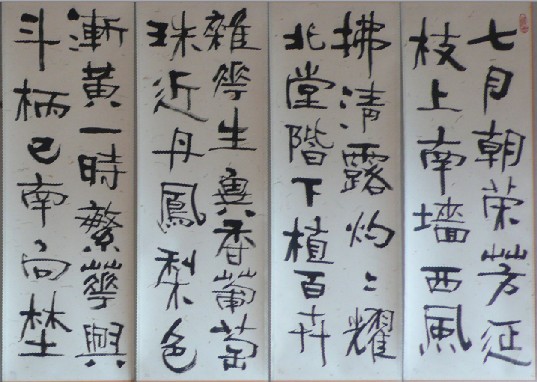 七月朝荣芳延
枝上南墙西風
拂清露灼〻耀
北堂階下植百卉
雜花生異香葡萄
珠近丹鳳梨色
漸黃一時繁華與
斗柄已南向埜